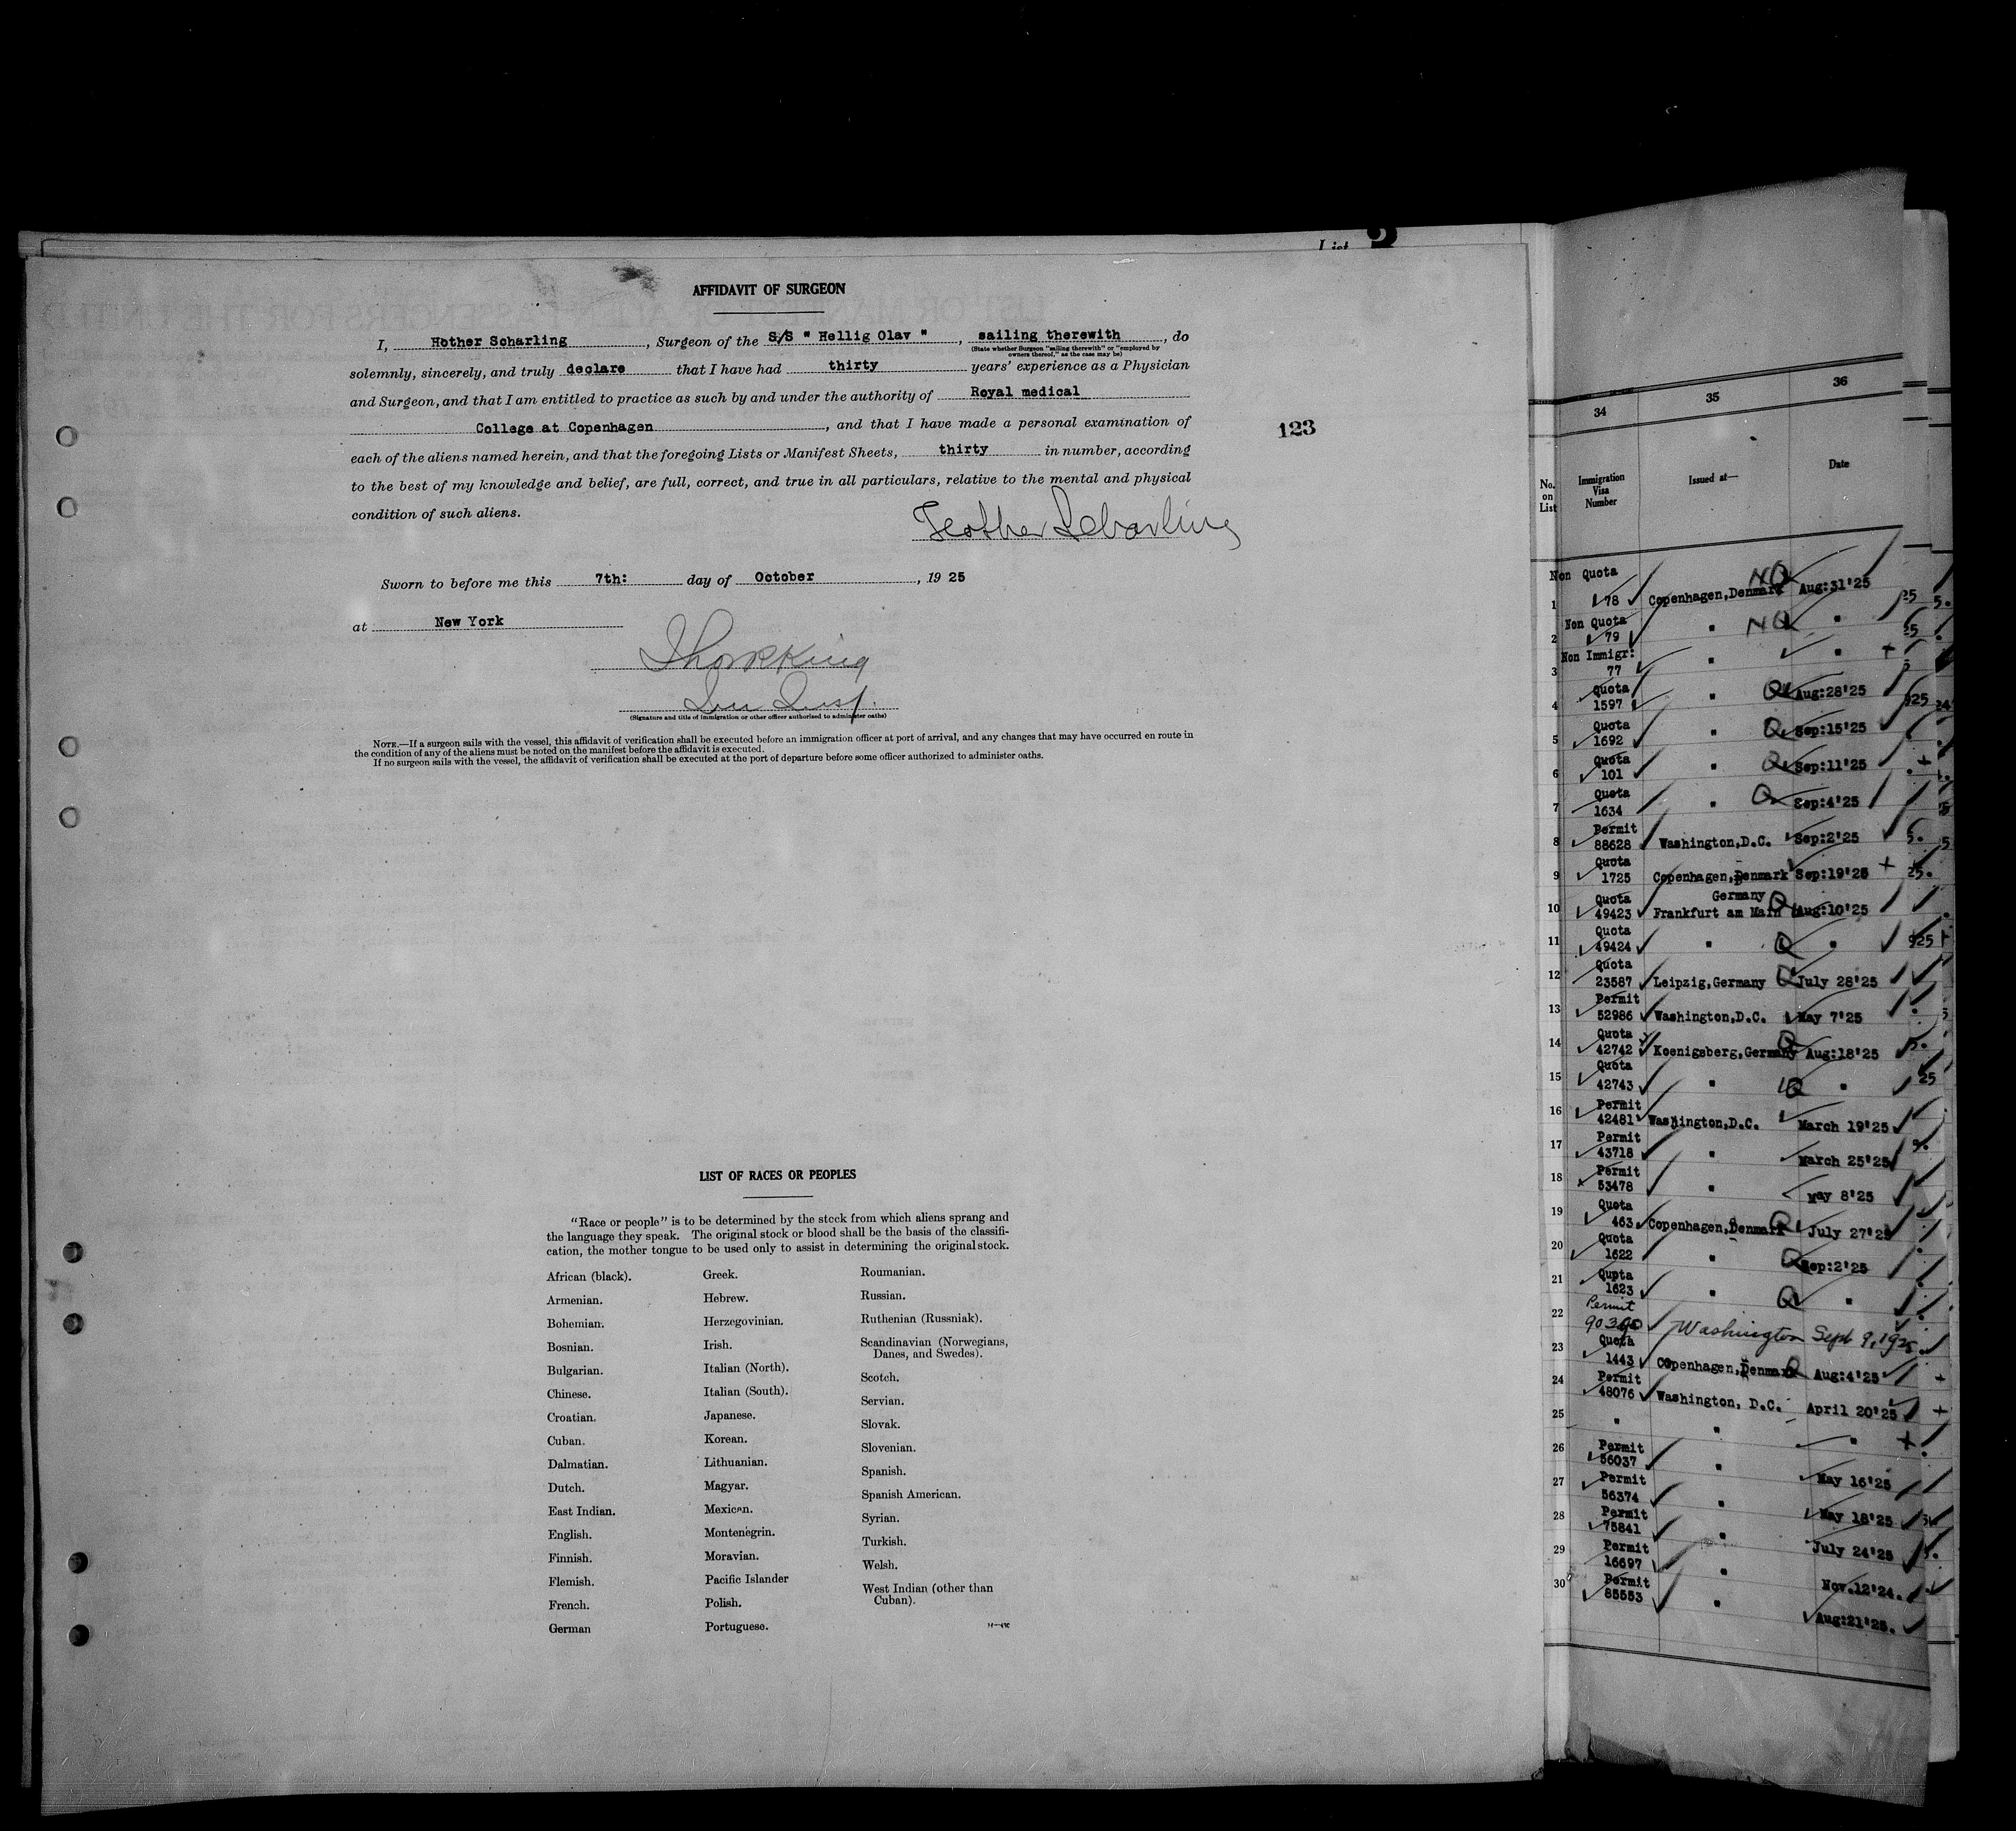 List 2
AFFIDAVIT OF SURGEON
I, Hother Scharling, Surgeon of the S/S " Hellig Olav ", sailing therewith, do
(State whether Surgeon "sailing therewith" or "employed by
owners thereof," as the case may be)
solemnly, sincerely, and truly declare that I have had thirty years' experience as a Physician
and Surgeon, and that I am entitled to practice as such by and under the authority of Royal medical
College at Copenhagen, and that I have made a personal examination of
123
each of the aliens named herein, and that the foregoing Lists or Manifest Sheets, thirty in number, according
to the best of my knowledge and belief, are full, correct, and true in all particulars, relative to the mental and physical
condition of such aliens.
Hother Scharling
Sworn to before me this 7th: day of October, 1925
at New York
(Signature and title of immigration or other officer authorized to administer oaths)
NOTE.—If a surgeon sails with the vessel, this affidavit of verification shall be executed before an immigration officer at port of arrival, and any changes that may have occurred en route in
the condition of any of the aliens must be noted on the manifest before the affidavit is executed.
If no surgeon sails with the vessel, the affidavit of verification shall be executed at the port of departure before some officer authorized to administer oaths.
LIST OF RACES OR PEOPLES
"Race or people" is to be determined by the stock from which aliens sprang and
the language they speak. The original stock or blood shall be the basis of the classifi-
cation, the mother tongue to be used only to assist in determining the original stock.
African (black).
Armenian.
Bohemian.
Bosnian.
Bulgarian.
Chinese.
Croatian.
Cuban.
Dalmatian.
Dutch.
East Indian.
English.
Finnish.
Flemish.
French.
German
Greek.
Hebrew.
Herzegovinian.
Irish.
Italian (North).
Italian (South).
Japanese.
Korean.
Lithuanian.
Magyar.
Mexican.
Montenegrin.
Moravian.
Pacific Islander
Polish.
Portuguese.
Roumanian.
Russian.
Ruthenian (Russniak).
Scandinavian (Norwegians,
Danes, and Swedes).
Scotch.
Servian.
Slovak.
Slovenian.
Spanish.
Spanish American.
Syrian.
Turkish.
Welsh.
West Indian (other than
Cuban).
34 35 36
No. on List
Immigration Visa Number
Issued at—
Date
Non Quota
1 78 Copenhagen,Denmark NQ Aug:31'25
Non Quota
2 79 " NQ "
Non Immigr:
3 77 " "
Quota
4 1597 " Q Aug:28'25
Quota
5 1692 " Q Sep:15'25
Quota
6 101 " Q Sep:11'25
Quota
7 1634 " Q Sep:4'25
Permit
8 88628 Washington,D.C. Sep:2'25
Quota
9 1725 Copenhagen,Denmark Sep:19'25
Quota Germany
10 49423 Frankfurt am Main Q Aug:10'25
Quota
11 49424 " Q "
Quota
12 23587 Leipzig,Germany Q July 28'25
Permit
13 52986 Washington,D.C. May 7'25
Quota
14 42742 Koenigsberg,Germany Q Aug:18'25
Quota
15 42743 " Q "
Permit
16 42481 Washington,D.C. March 19'25
Permit
17 43718 " March 25'25
Permit
18 53478 " May 8'25
Quota
19 463 Copenhagen,Denmark Q July 27'25
Quota
20 1622 " Q Sep:2'25
Qupta
21 1623 " Q "
Permit
22 Washington Sept 9, 1925
Quota
23 1443 Copenhagen,Denmark Q Aug:4'25
Permit
24 48076 Washington, D.C. April 20'25
25 " " "
Permit
26 56037 " May 16'25
Permit
27 56374 " May 18'25
Permit
28 75841 " July 24'25
Permit
29 16697 " Nov.12'24.
Permit
30 85553 " Aug:21'25.